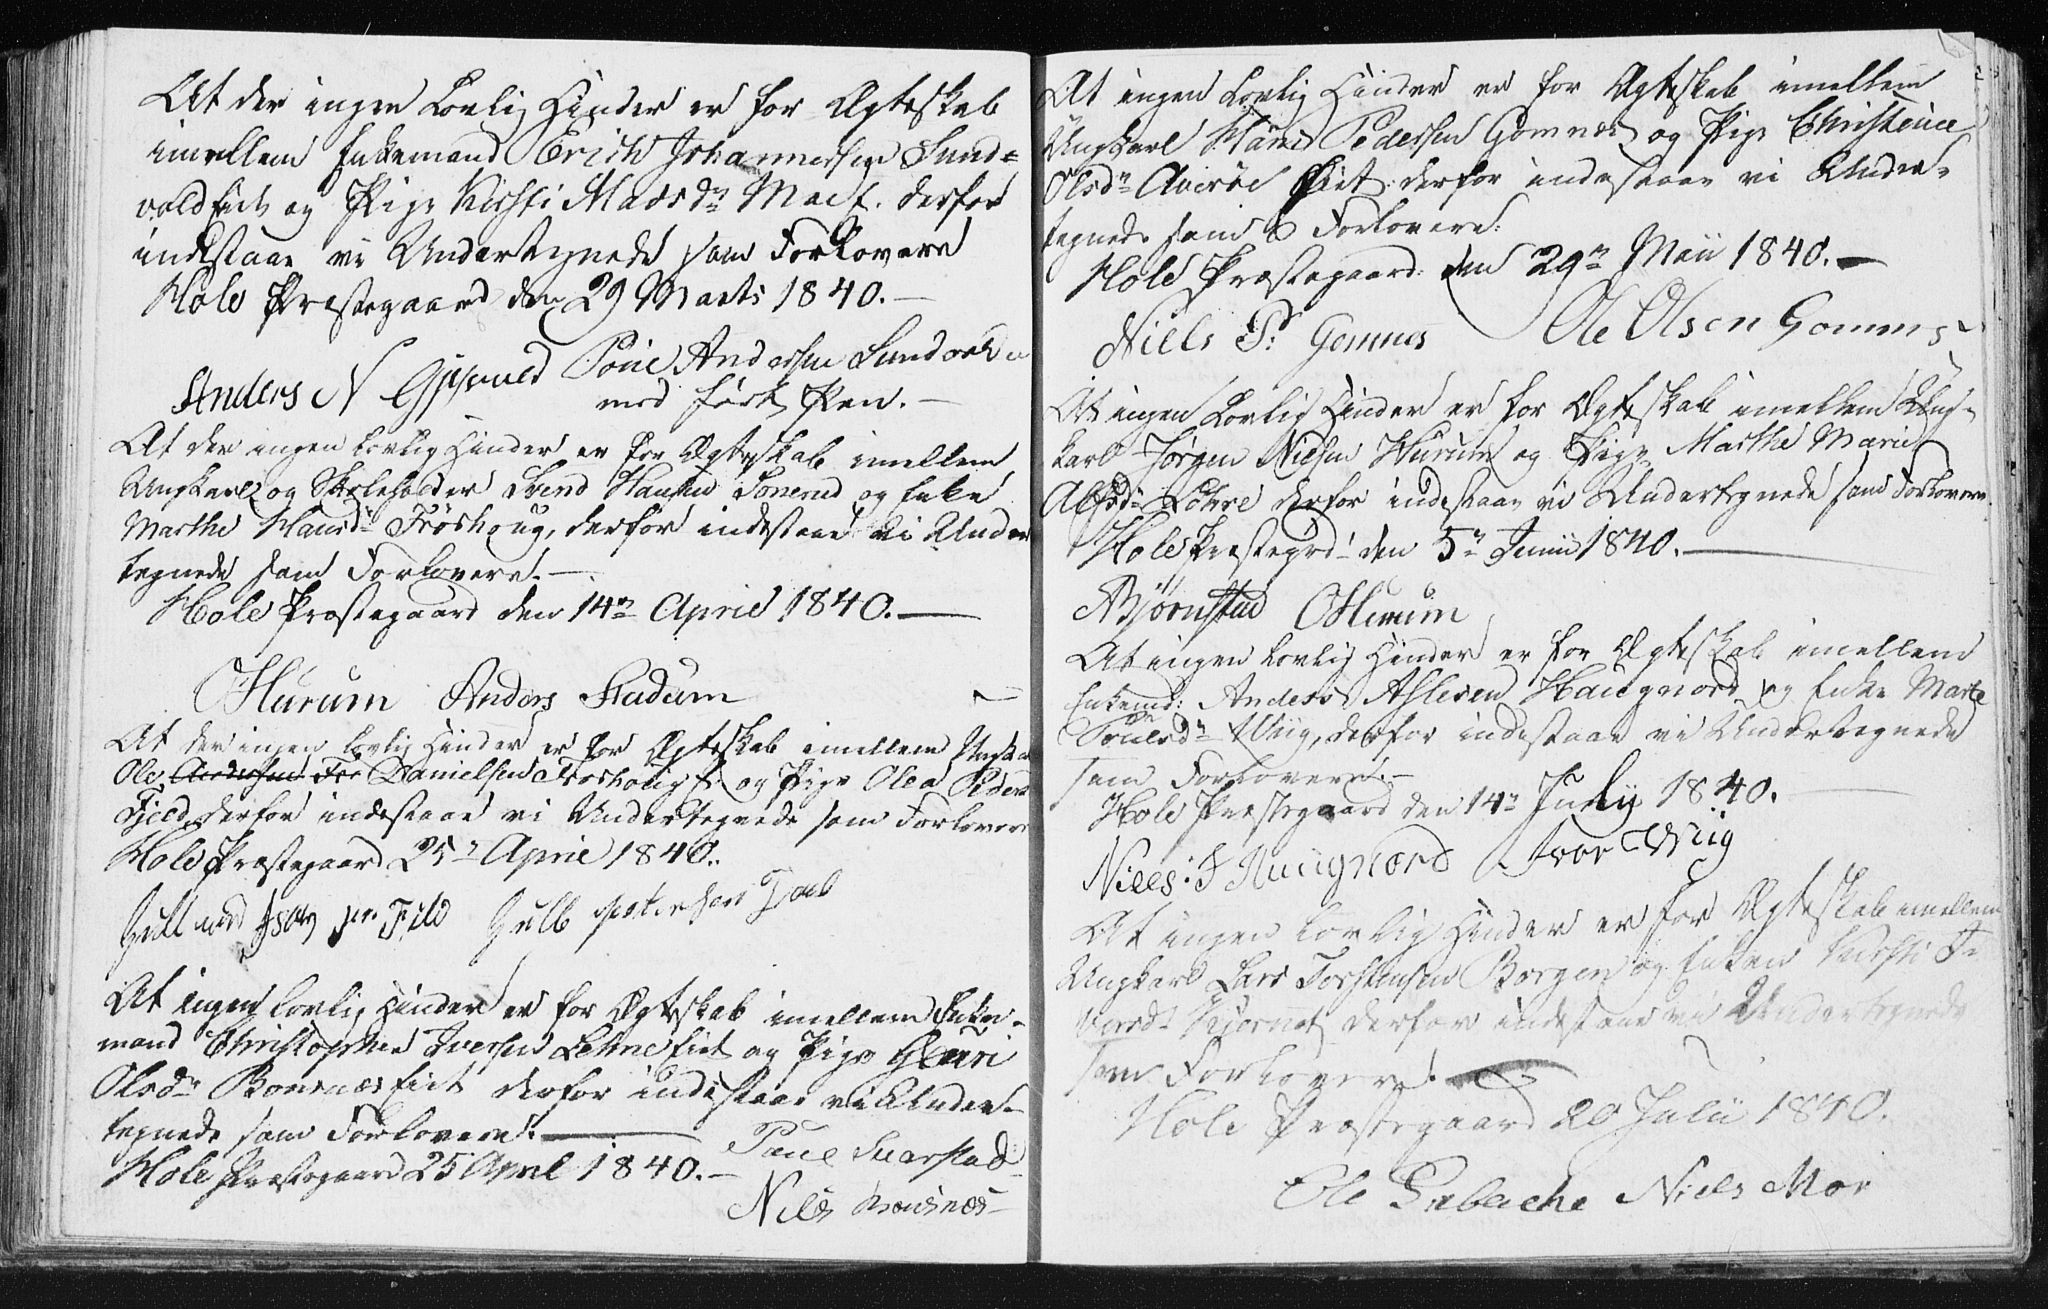 At der ingen Lovlig Hinder er for Ægteskab
imellem Enkemand Erich Johannessen Sund=
vold Eiet og Pige Kirsti Madsdr derfor
indestaae vi Undertegnede som Forlovere
Hole Præstegaard den 29 Marts 1840.
Anders N Gjesvold Poul Andersen Sundvolden
med ført Pen.
At der ingen lovlig Hinder er for Ægteskab imellem
Ungkarl og Skoleholder Svend Hansen Sonerud og Enke
Marthe Hansdr Frøshoug, derfor indestaae vi Under
tegnede som Forlovere.
Hole Præstegaard den 14de April 1840.
OHurum Anders Stadum
At der ingen lovlig Hinder er for Ægteskab imellem Ungkarl
Ole Andersen Fro Danielsen Frøshoug og Pige Olea Peders
Fjeld, derfor indestaae vi Undertegnede som Forlovere
Hole Præstegaard 25de April 1840.
Gulbrand Fjeld Gulb
At ingen lovlig Hinder er for Ægteskab imellem Enke-
mand Christopher Iversen Lehne Eiet og Pige Guri
Olsdr Bønsnæs Eiet derfor indestaae vi Under-
tegnede som Forlovere.
Hole Præstegaard 25 April 1840. Paul Svarstad
Niels Bønsnæs
At ingen Lovlig Hinder er for Ægteskab imellem
Ungkarl Hans Pedersen Gomnæs og Pige Christence
Olsdr Averøe Eiet derfor indestaae vi Under-
tegnede som Forlovere:
Hole Præstegaard den 29de Maii 1840.
Niels P: Gomnes Ole Olsen Gomnes
At ingen Lovlig Hinder er for Ægteskab imellem Ung-
karl Jørgen Nielsen Hurum og Pige Marthe Marie
Alfsdr Løhre derfor indestaae vi Undertegnede som Forlovere
Hole Præstegrd den 5te Junii 1840.
ABjørnstad OHurum
At ingen lovlig Hinder er for Ægteskab imellem
Enkemd: Anders Aslesen Haugnord og Enke Marte
Poulsdr Wiig, derfor indestaae vi Undertegnede
som Forlovere.
Hole Præstegaard den 14de July 1840.
Niels: J Houignord Iver Wiig
At ingen lovlig Hinder er for Ægteskab imellem
Ungkarl Lars Torstensen Borgen og Enken Kirsti I-
versdr derfor indestaae vi Undertegnede
som Forlovere.
Hole Præstegaard 20 Julii 1840.
Ole Niels Moe